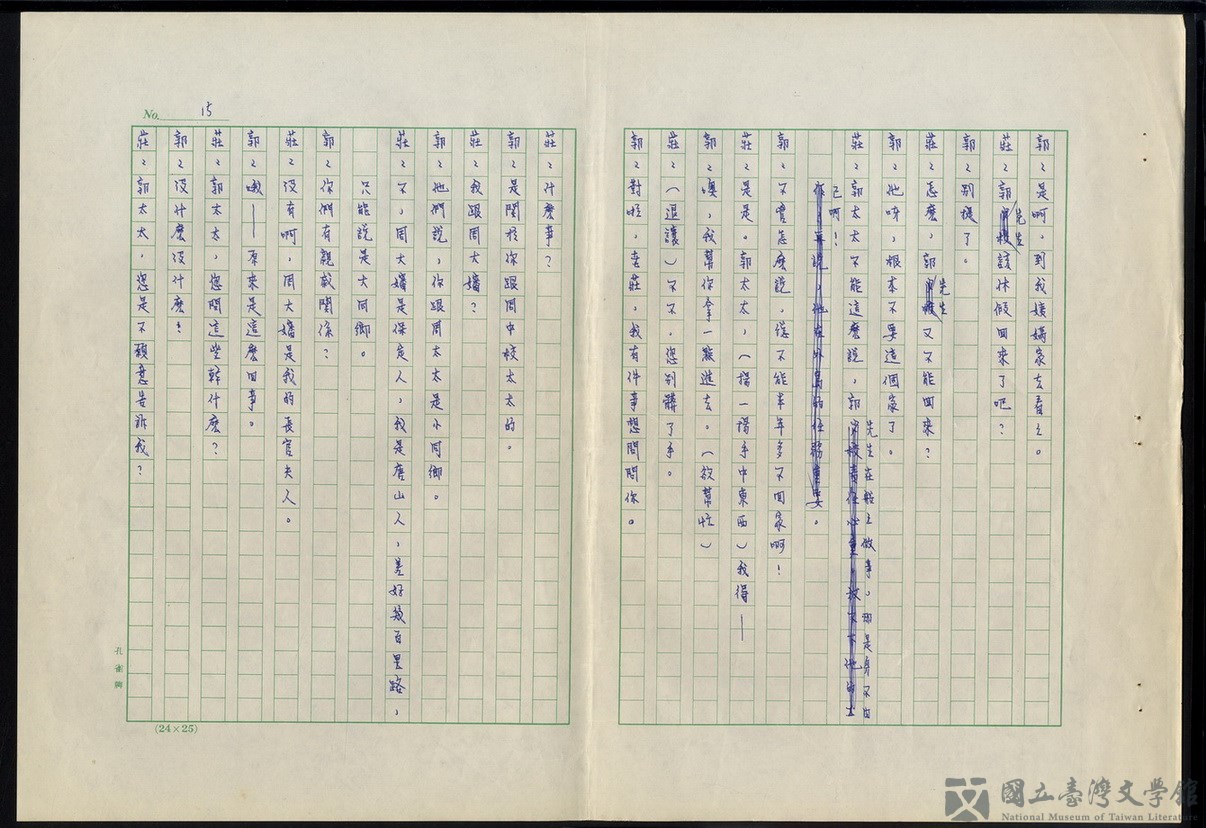 郭:是啊,到我媽媽家去看看。
莊:郭先生該休假回來了吧?
郭:別提了。
莊:怎麼,郭先生又不能回來?
郭:他呀,根本不要這個家了。
莊:郭太太不能這麼說,郭先生在船上做事,那是身不由
己啊!
郭:不管怎麼說,總不能半年多不回家啊!
莊:是是。郭太太,(揚一揚手中東西)我得——
郭:噢,我幫你拿一點進去。(欲幫忙)
莊:(退讓)不不,您別髒了手。
郭:對啦,老莊,我有件事想問問你。
No. 15
莊:什麼事?
郭:是關於你跟周中校太太的。
莊:我跟周大嬸?
郭:他們說,你跟周太太是小同鄉。
莊:不,周大嬸是保定人,我是唐山人,差好幾百里路,
只能說是大同鄉。
郭:你們有親戚關係?
莊:沒有啊,周大嬸是我的長官夫人。
郭:哦——原來是這麼回事。
莊:郭太太,您問這些幹什麼?
郭:沒什麼沒什麼!
莊:郭太太,您是不願意告訴我?
孔雀牌
(24×25)
國立臺灣文學館
National Museum of Taiwan Literature